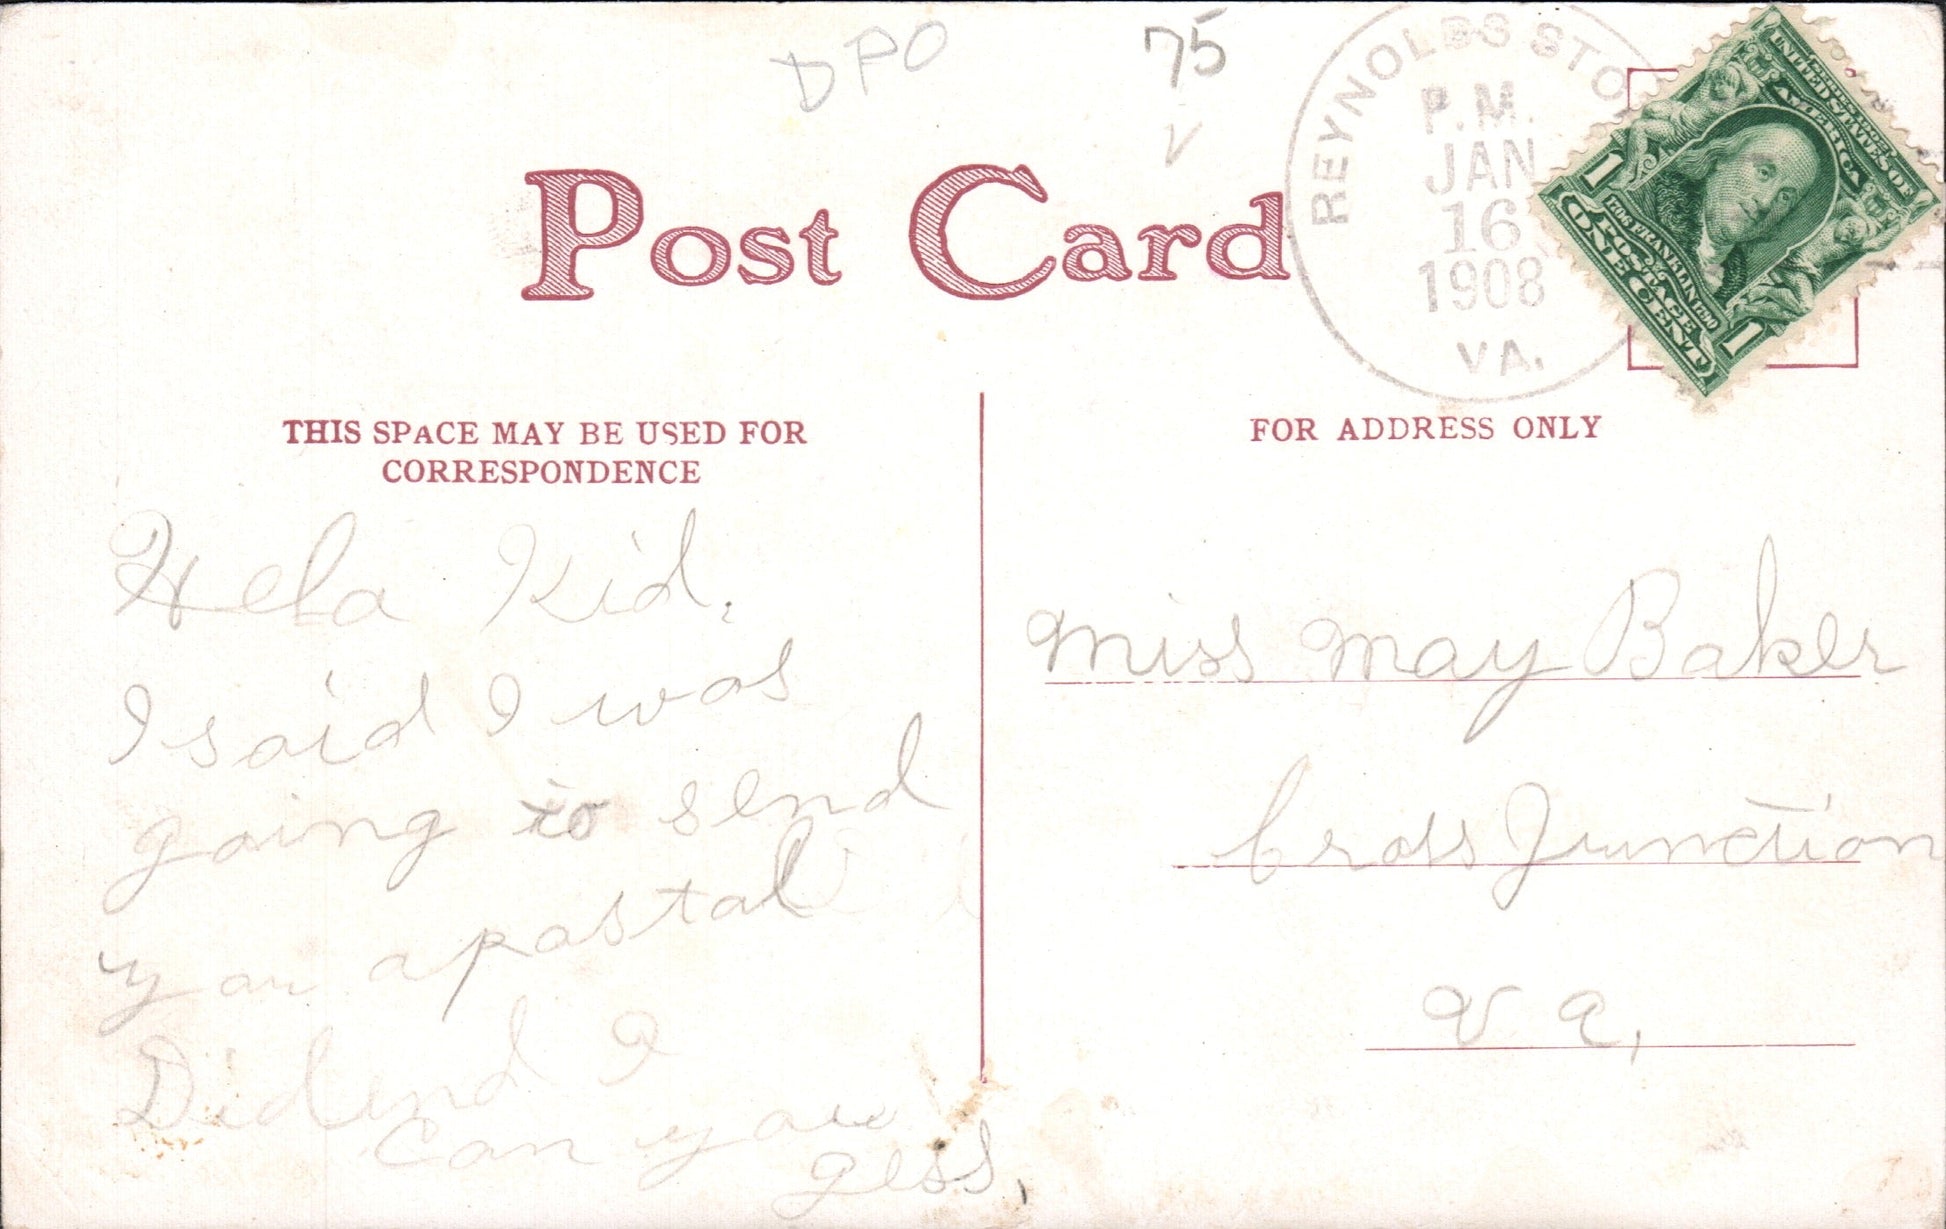 DPO
75
REYNOLDS STO
P.M.
JAN
16
1908
VA.
UNITED STATES OF
AMERICA
1706 FRANKLIN 1790
POSTAGE
1 ONE CENT 1
Post Card
THIS SPACE MAY BE USED FOR
CORRESPONDENCE
Helo Kid,
I said I was
going to send
you a postal
Didend I
can you
gess,
FOR ADDRESS ONLY
Miss May Baker
Cross Junction
Va,